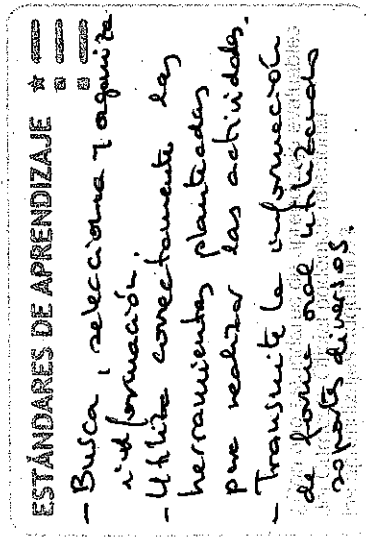 ESTÁNDARES DE APRENDIZAJE
- Busca, selecciona y organiza
información.
- Utiliza correctamente las
herramientas planteadas
para realizar las actividades.
- Transmite la información
de forma oral utilizando
soportes diversos.